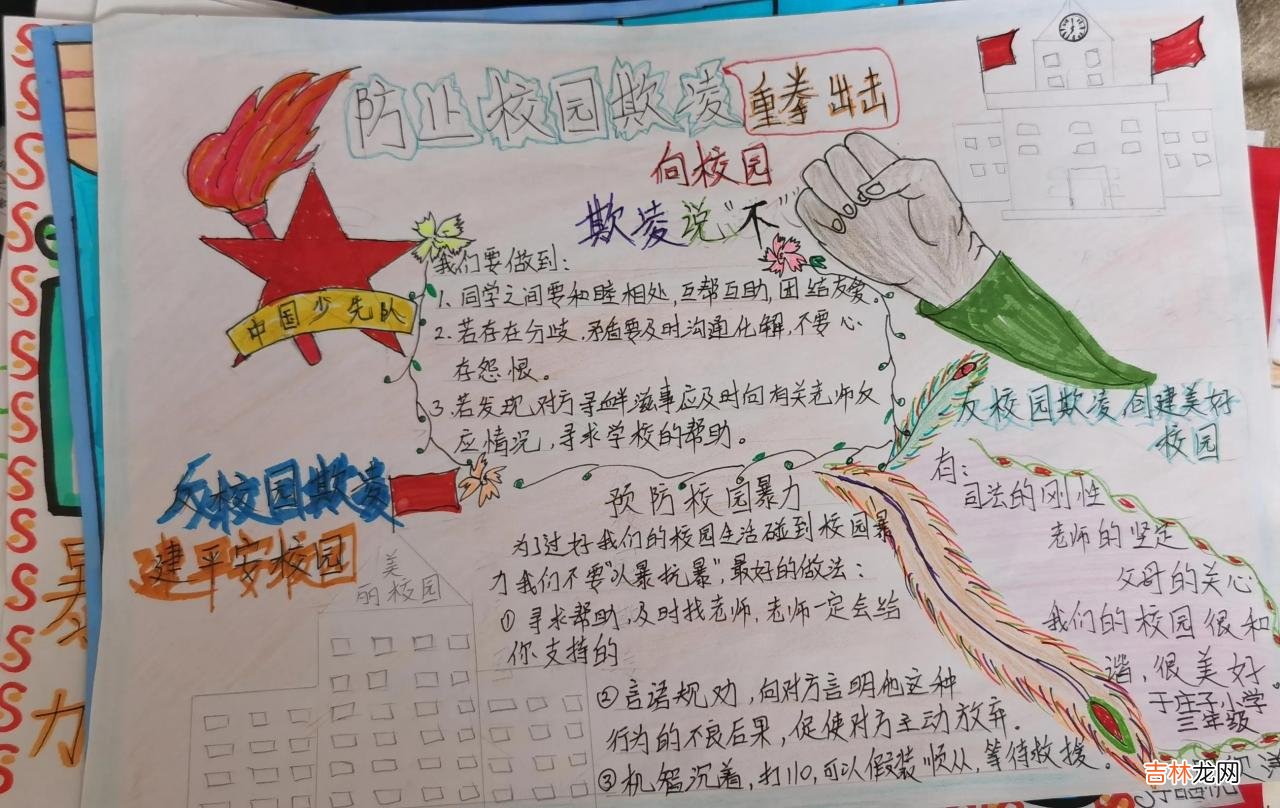 防止校园欺凌
重拳出击
向校园
欺凌说“不”
中国少先队
我们要做到：
1. 同学之间要和睦相处，互帮互助，团结友爱。
2. 若存在分歧，矛盾要及时沟通化解，不要心
存怨恨。
3. 若发现对方寻衅滋事应及时向有关老师反
应情况，寻求学校的帮助。
反校园欺凌
建平安校园
美
丽校园
预防校园暴力
为了过好我们的校园生活碰到校园暴
力我们不要“以暴抗暴”，最好的做法：
① 寻求帮助，及时找老师，老师一定会给
你支持的
② 言语规劝，向对方言明他这种
行为的不良后果，促使对方主动放弃.
③ 机智沉着，打110，可以假装顺从，等待救援。
反校园欺凌创建美好
校园
有：
司法的刚性
老师的坚定
父母的关心
我们的校园很和
谐，很美好
于庄子小学
三年级
暴
力
吉林龙网